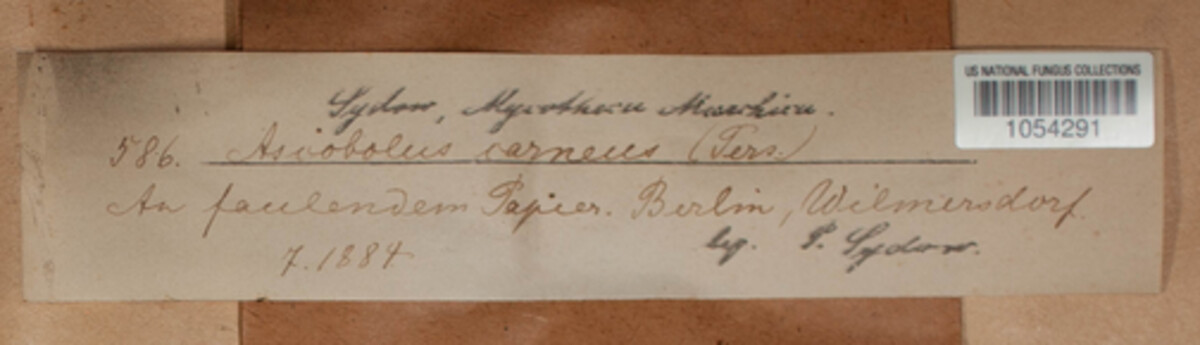 Sydow, Mycotheca Marchica.
US NATIONAL FUNGUS COLLECTIONS
1054291
586. Ascobolus carneus (Pers.)
An faulendem Papier. Berlin, Wilmersdorf.
7. 1884
leg. P. Sydow.